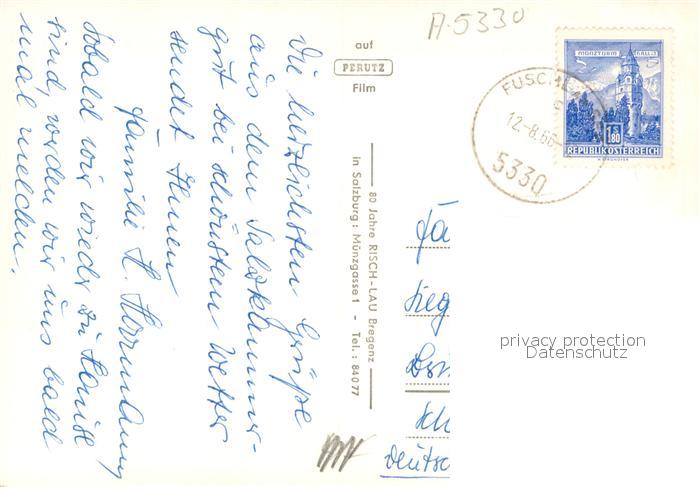 Die herzlichsten Grüße
aus dem Salzkammer-
gut bei schönstem Wetter
sendet Ihnen
Familie H. Herrmann
Sobald wir wieder zu Hause
sind, werden wir uns bald
mal melden.
auf
PERUTZ
Film
80 Jahre RISCH-LAU Bregenz
in Salzburg: Münzgasse 1 - Tel.: 84077
A-5330
MÜNZTURM HALL i. T.
S 1.80
REPUBLIK ÖSTERREICH
FUSCHL AM
12.-8.66
5330
Fa
Sieg
Schl
Deutsc
privacy protection
Datenschutz